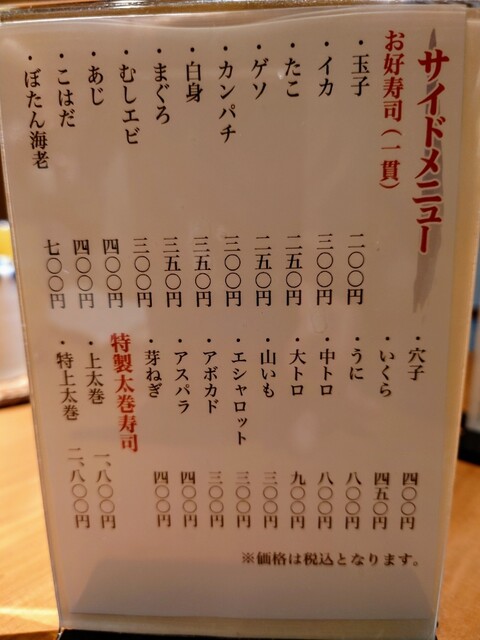 サイドメニュー
お好寿司(一貫)
・玉子 二〇〇円
・イカ 三〇〇円
・たこ 二五〇円
・ゲソ 二五〇円
・カンパチ 三〇〇円
・白身 三五〇円
・まぐろ 三五〇円
・むしエビ 三〇〇円
・あじ 四〇〇円
・こはだ 四〇〇円
・ぼたん海老 七〇〇円
・穴子 四〇〇円
・いくら 四五〇円
・うに 八〇〇円
・中トロ 八〇〇円
・大トロ 九〇〇円
・山いも 三〇〇円
・エシャロット 三〇〇円
・アボカド 三〇〇円
・アスパラ 四〇〇円
・芽ねぎ 四〇〇円
特製太巻寿司
・上太巻 一、八〇〇円
・特上太巻 二、八〇〇円
※価格は税込となります。